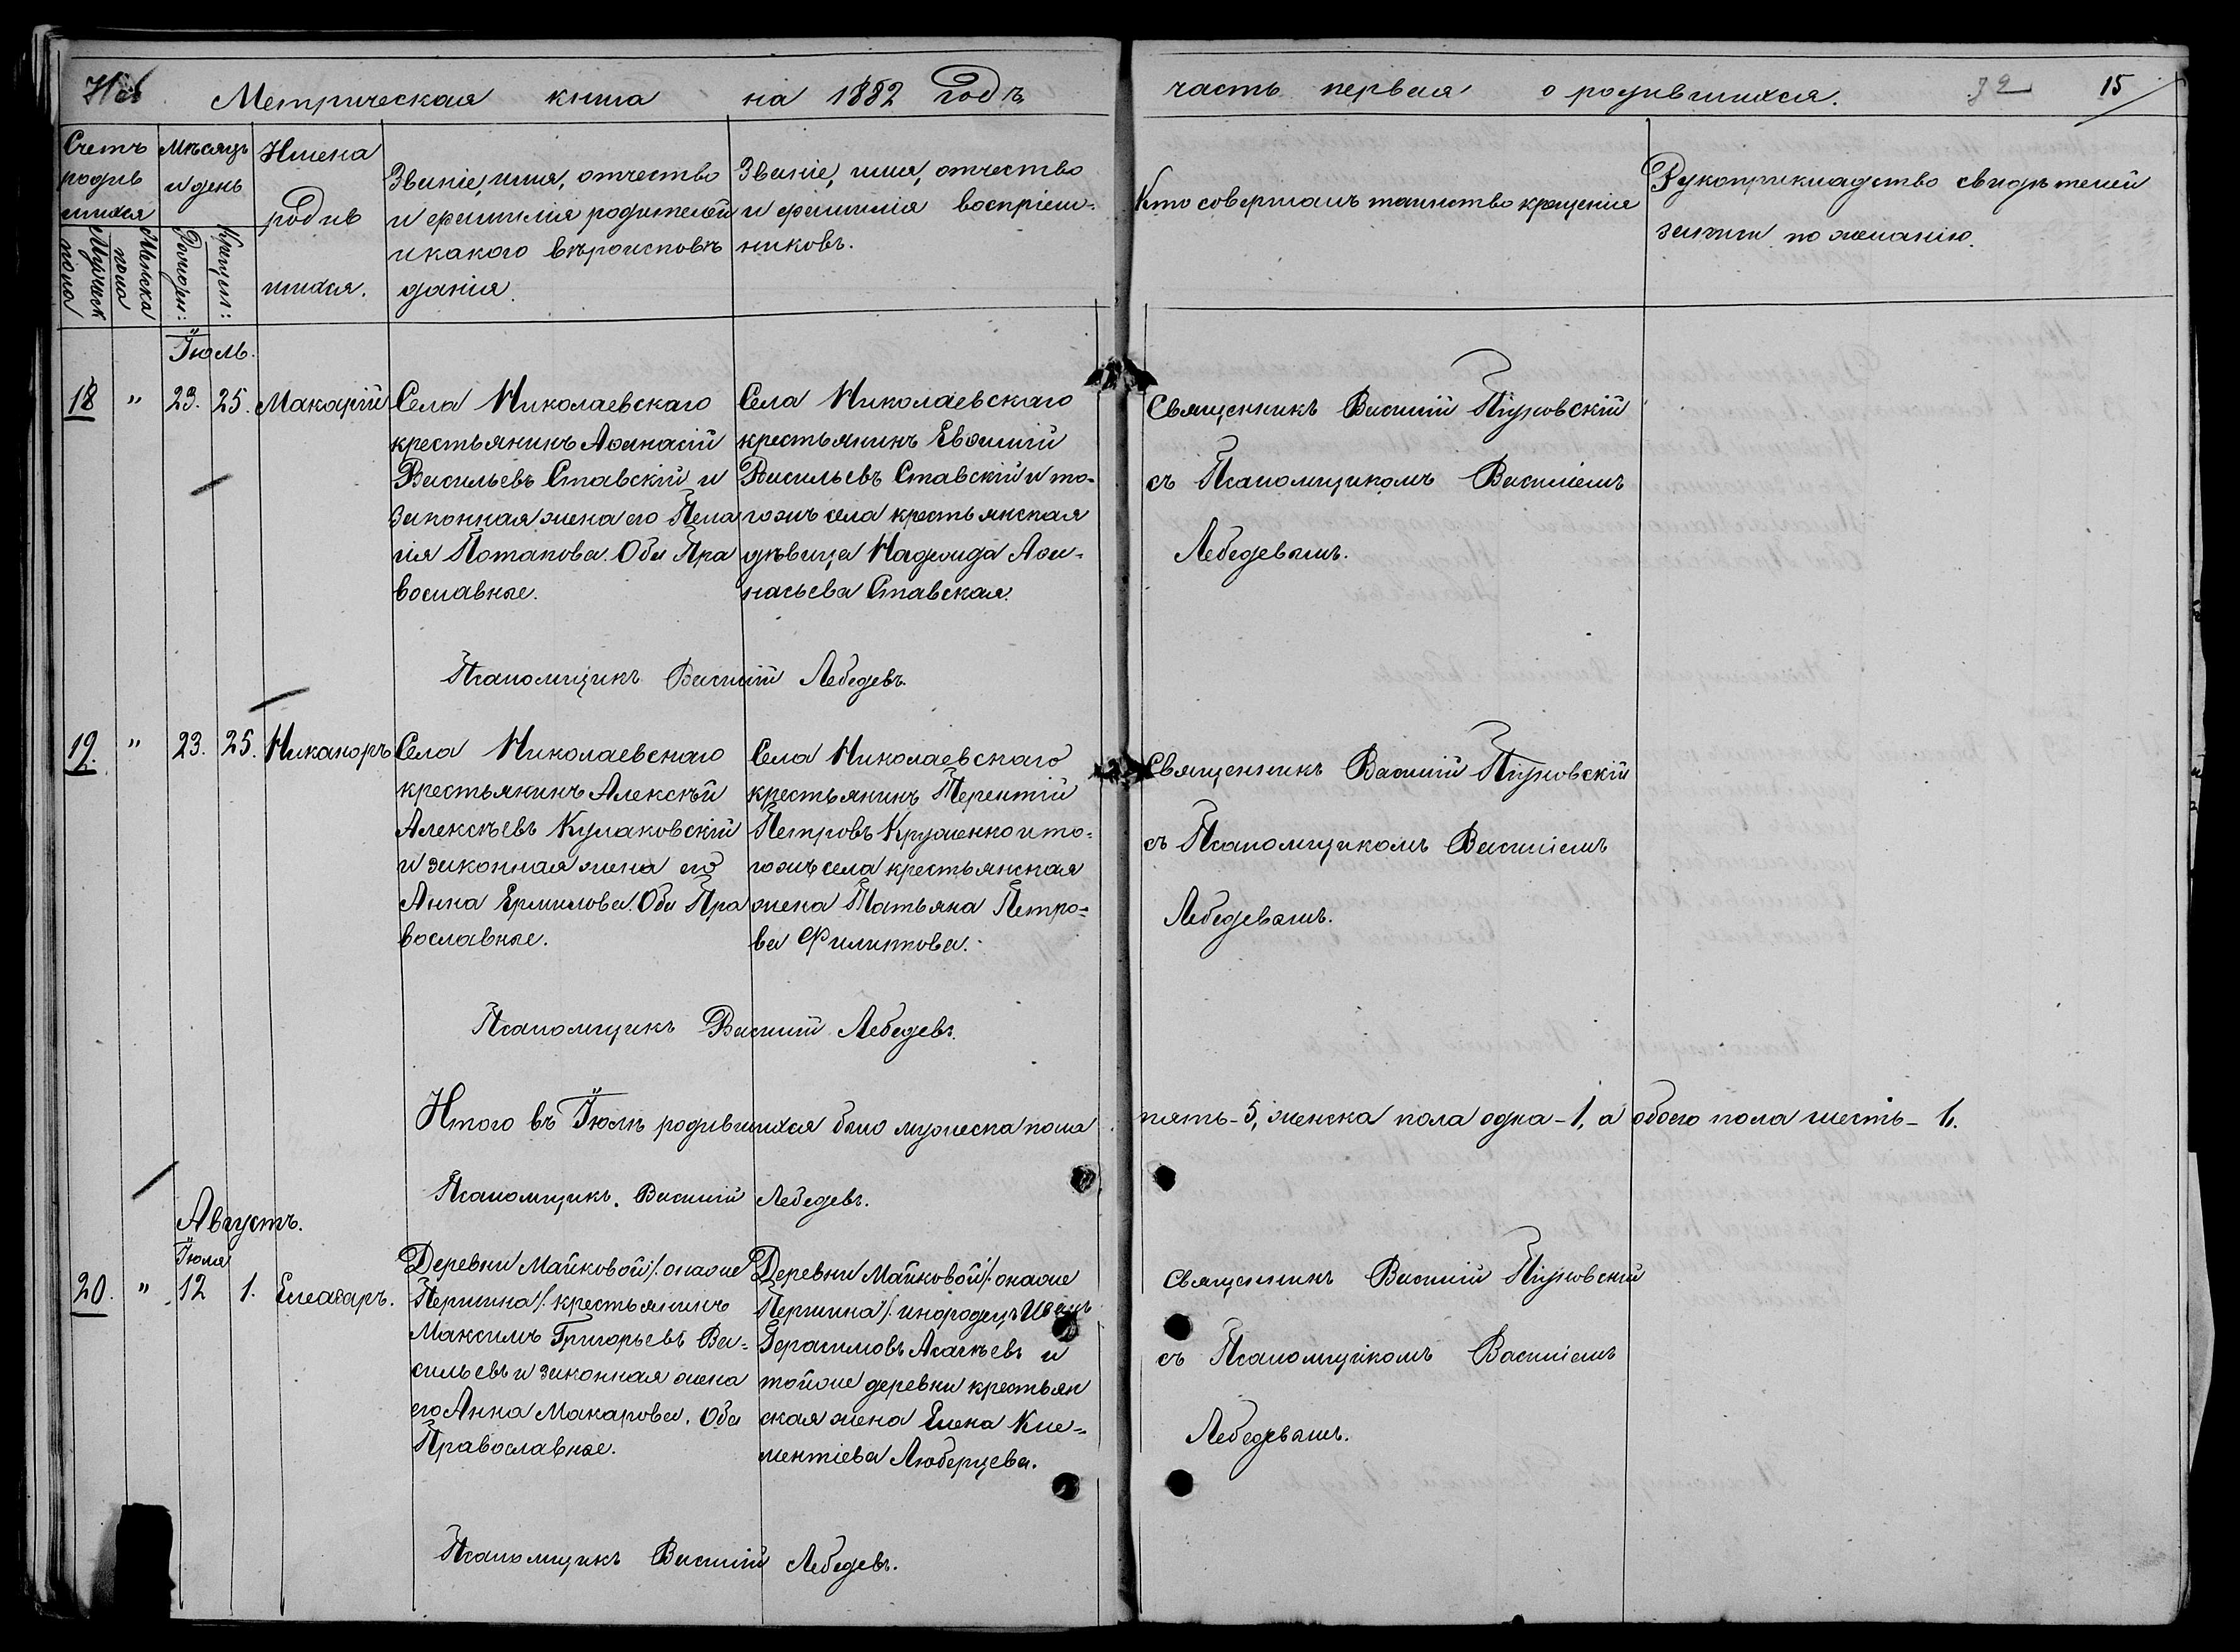 Метрическая книга на 1882 годъ
часть первая о родившихся.
32
15
Счетъ
родив
шихся
Мужеск
пола
Женска
пола
Мѣсяцъ
и день
Рожден:
Крещен:
Имена
родив
шихся.
Званіе, имя, отчество
и фамилія родителей
и какого вѣроисповѣ
данія.
Званіе, имя, отчество
и фамилія воспріем-
никовъ.
Кто совершалъ таинство крещенія
Рукоприкладство свидѣтелей
записи по желанію.
Іюль.
18 " 23. 25. Макарій
Села Николаевскаго
крестьянинъ Аѳанасій
Васильевъ Ставскій и
законная жена его Пела
гія Потапова. Оба Пра
вославные.
Села Николаевскаго
крестьянинъ Евѳимій
Васильевъ Ставскій и то-
гожъ села крестьянская
дѣвица Надежда Аѳа-
насьева Ставская.
Священникъ Василій
съ Псаломщикомъ Василіемъ
Лебедевымъ.
Псаломщикъ Василій Лебедевъ.
19. " 23. 25. Никаноръ
Села Николаевскаго
крестьянинъ Алексѣй
Алексѣевъ Кулаковскій
и законная жена его
Анна Ермилова. Оба Пра
вославные.
Села Николаевскаго
крестьянинъ Терентій
Петровъ Круженко и то-
гожъ села крестьянская
жена Татьяна Петро-
ва Филиппова.
Священникъ Василій
съ Псаломщикомъ Василіемъ
Лебедевымъ.
Псаломщикъ Василій Лебедевъ.
Итого въ Іюлѣ родившихся было мужеска пола пять-5, женска пола одна-1, а обоего пола шесть-6.
Псаломщикъ Василій Лебедевъ.
Августъ.
Іюля
20. " 12 1. Елеазаръ.
Деревни Майковой /: онаже
Першина /: крестьянинъ
Максимъ Григорьевъ Ва-
сильевъ и законная жена
его Анна Макарова. Оба
Православные.
Деревни Майковой /: онаже
Першина /: инородецъ Иванъ
Герасимовъ Асачевъ и
тойже деревни крестьян
ская жена Елена Кле-
ментіева Люберцева.
Священникъ Василій
съ Псаломщикомъ Василіемъ
Лебедевымъ.
Псаломщикъ Василій Лебедевъ.